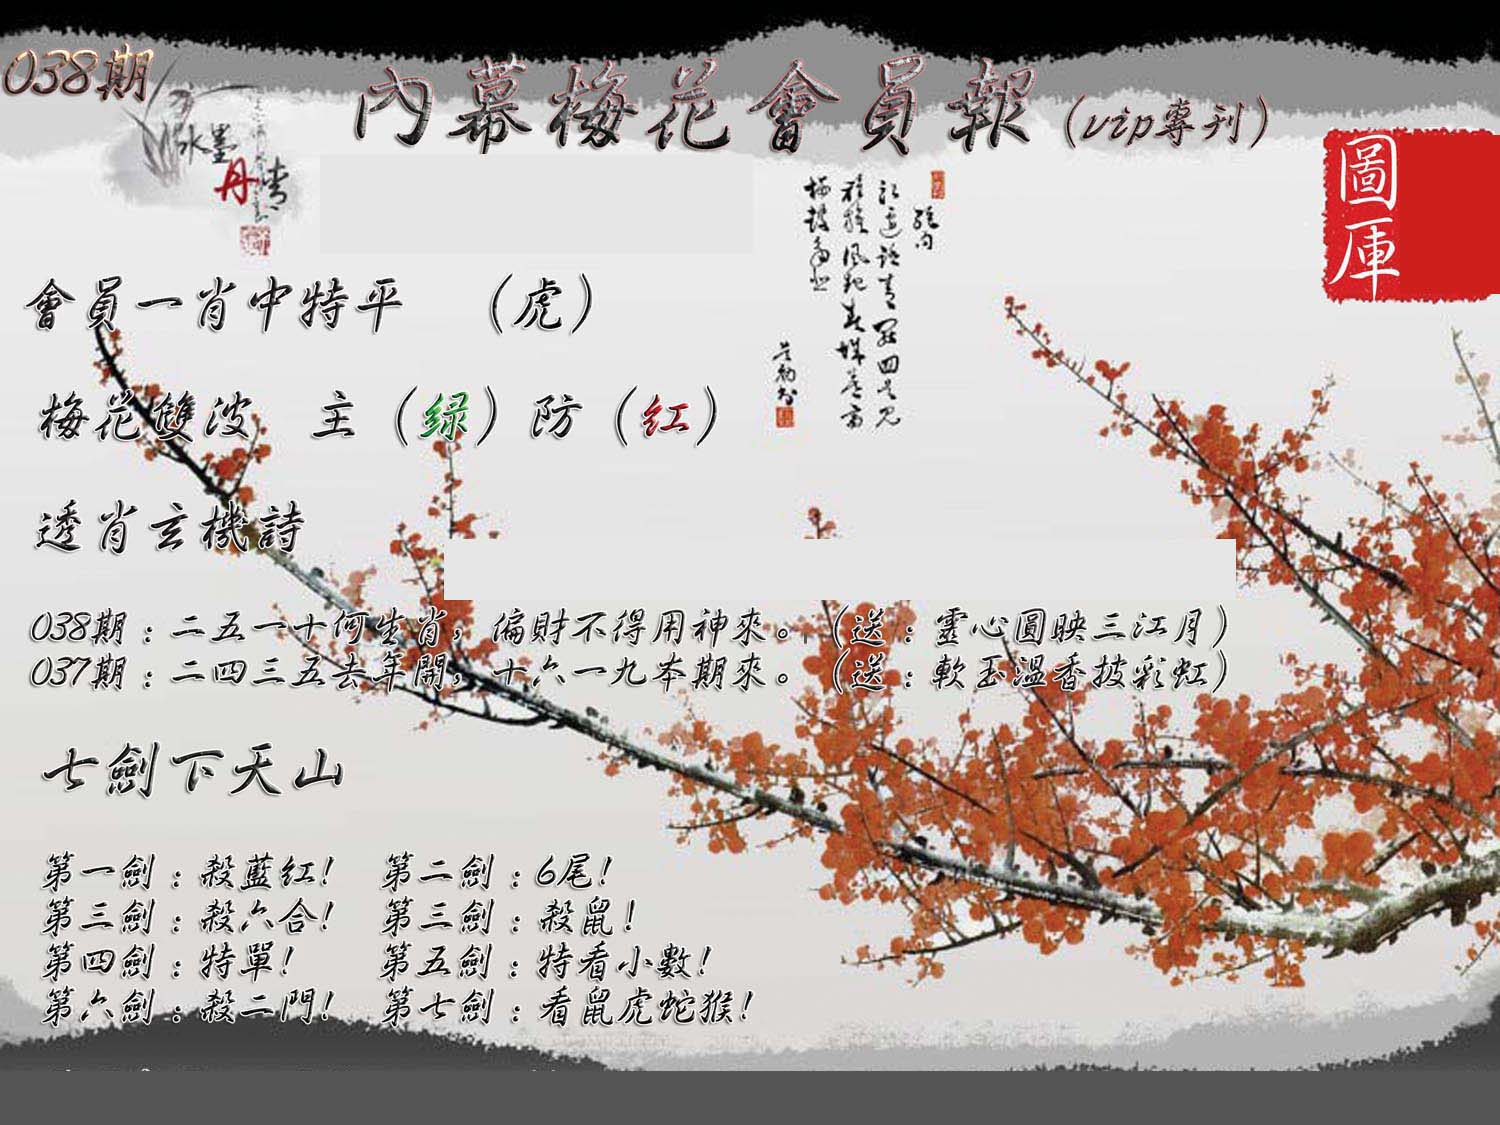 038期
內幕梅花會員報(vip專刊)
水墨
丹青
圖庫
會員一肖中特平 (虎)
梅花雙波 主(绿)防(红)
透肖玄機詩
038期:二五一十何生肖,偏財不得用神來。(送:靈心圓映三江月)
037期:二四三五去年開,十六一九本期來。(送:軟玉溫香披彩虹)
七劍下天山
第一劍:殺藍红! 第二劍:6尾!
第三劍:殺六合! 第三劍:殺鼠!
第四劍:特單! 第五劍:特看小數!
第六劍:殺二門! 第七劍:看鼠虎蛇猴!